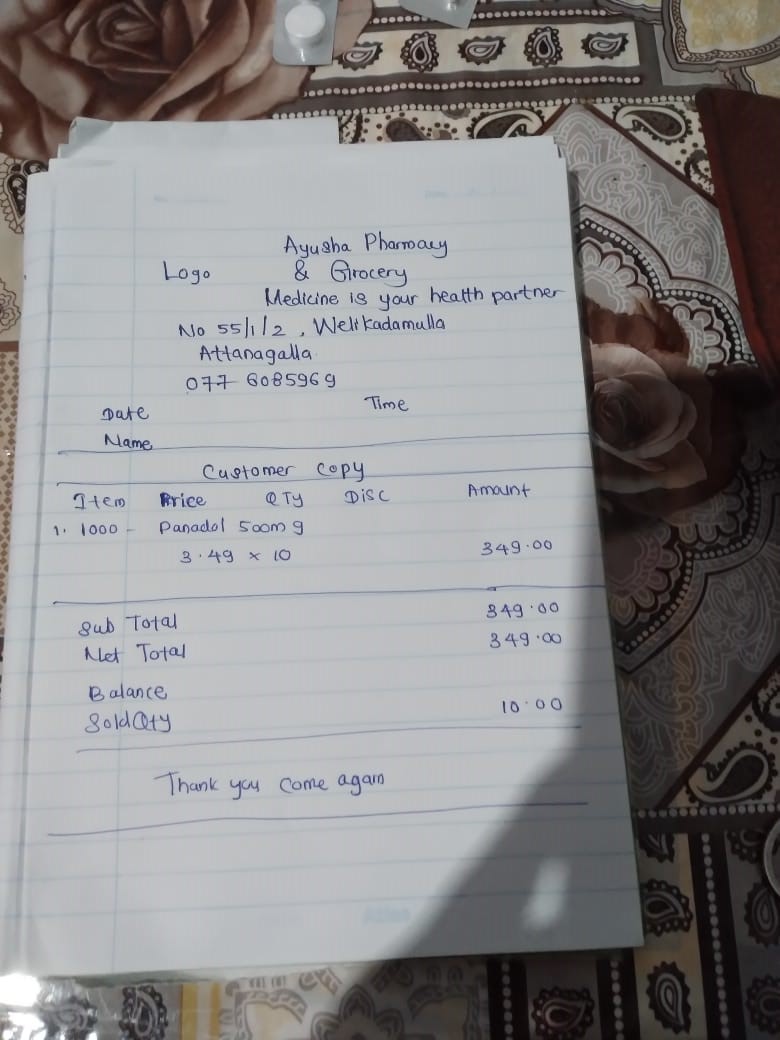 Ayusha Pharmacy
Logo & Grocery
Medicine is your health partner
No 55/1/2, Welikadamulla
Attanagalla
077 6085969
Date Time
Name
Customer copy
Item Price QTY Disc Amount
1. 1000 - Panadol 500mg
3.49 x 10 349.00
Sub Total 349.00
Net Total 349.00
Balance
Sold Qty 10.00
Thank you come again